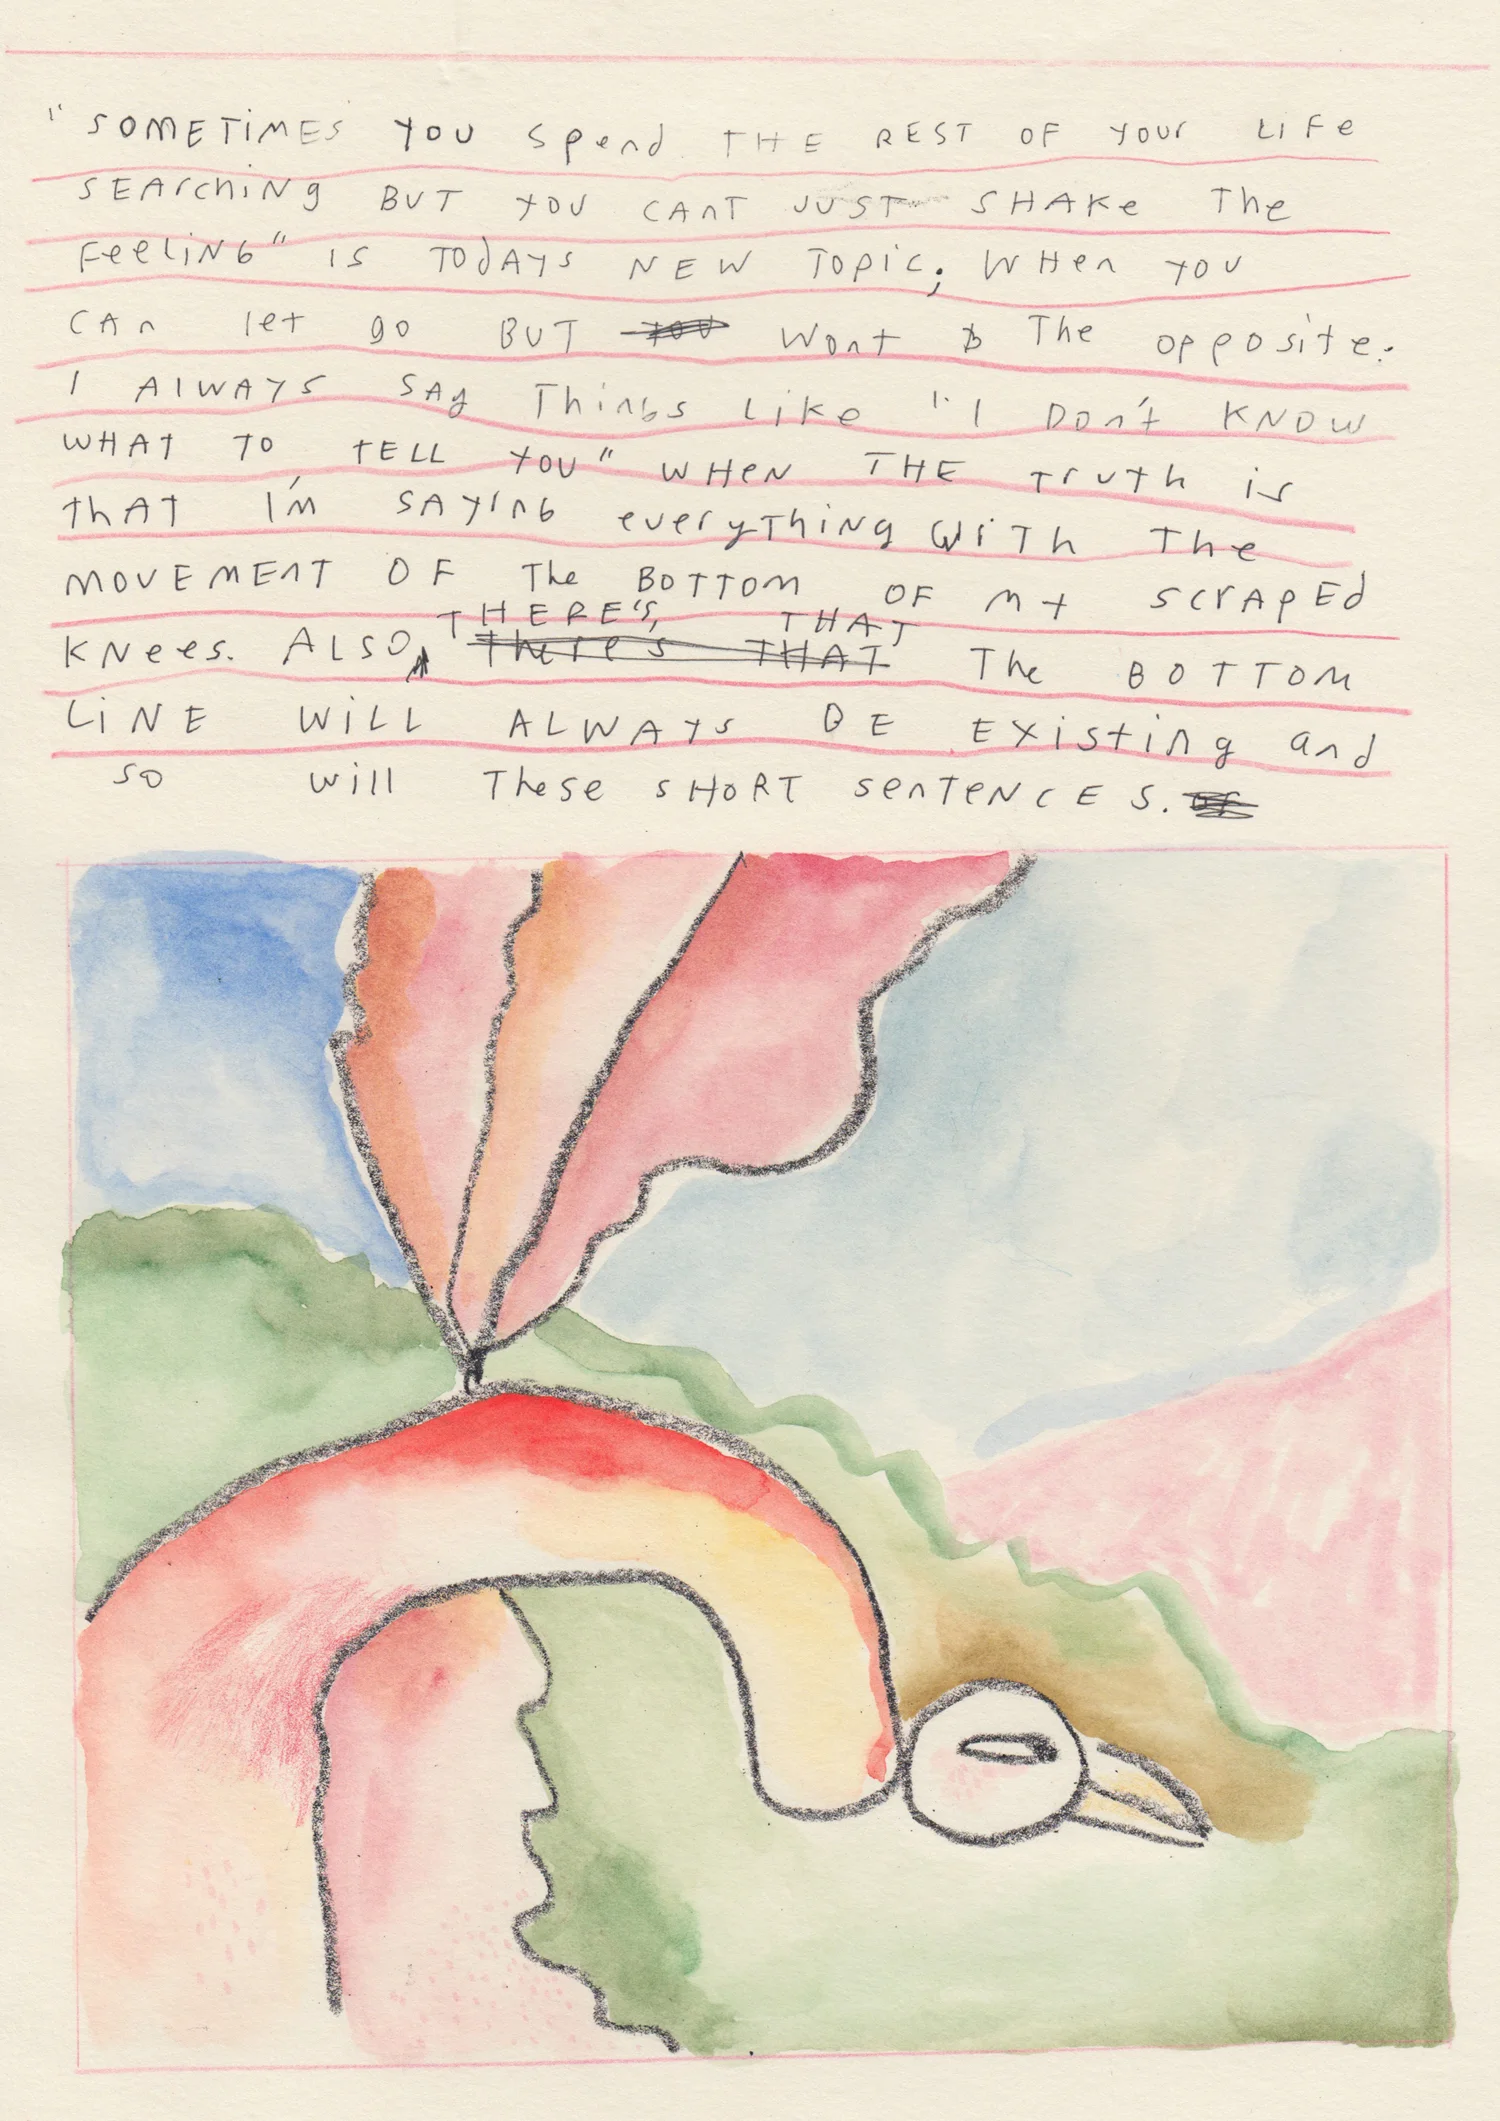 "SOMETIMES YOU Spend THE REST OF YOUr LIFe
SEArchiNg BUT YOU CAnT JUST SHAKe The
FeeLiNG" IS TODAYS NEW TOPic; WHen YOU
CAn let go BUT Wont & The opposite.
I AlWAYS SAy ThinGs Like "I Don't KNOW
WHAT TO TELL YOU" WHeN THE Truth is
thAT I'm SAYInG everyThiNg WiTh The
MOVEMEnT OF The BOTTOM OF MY ScrAPEd
KNees. ALSO, THERE'S, THAT The BOTTOM
LiNE WiLL ALWAYS BE EXisting and
so will These SHORT SenTeNCES.